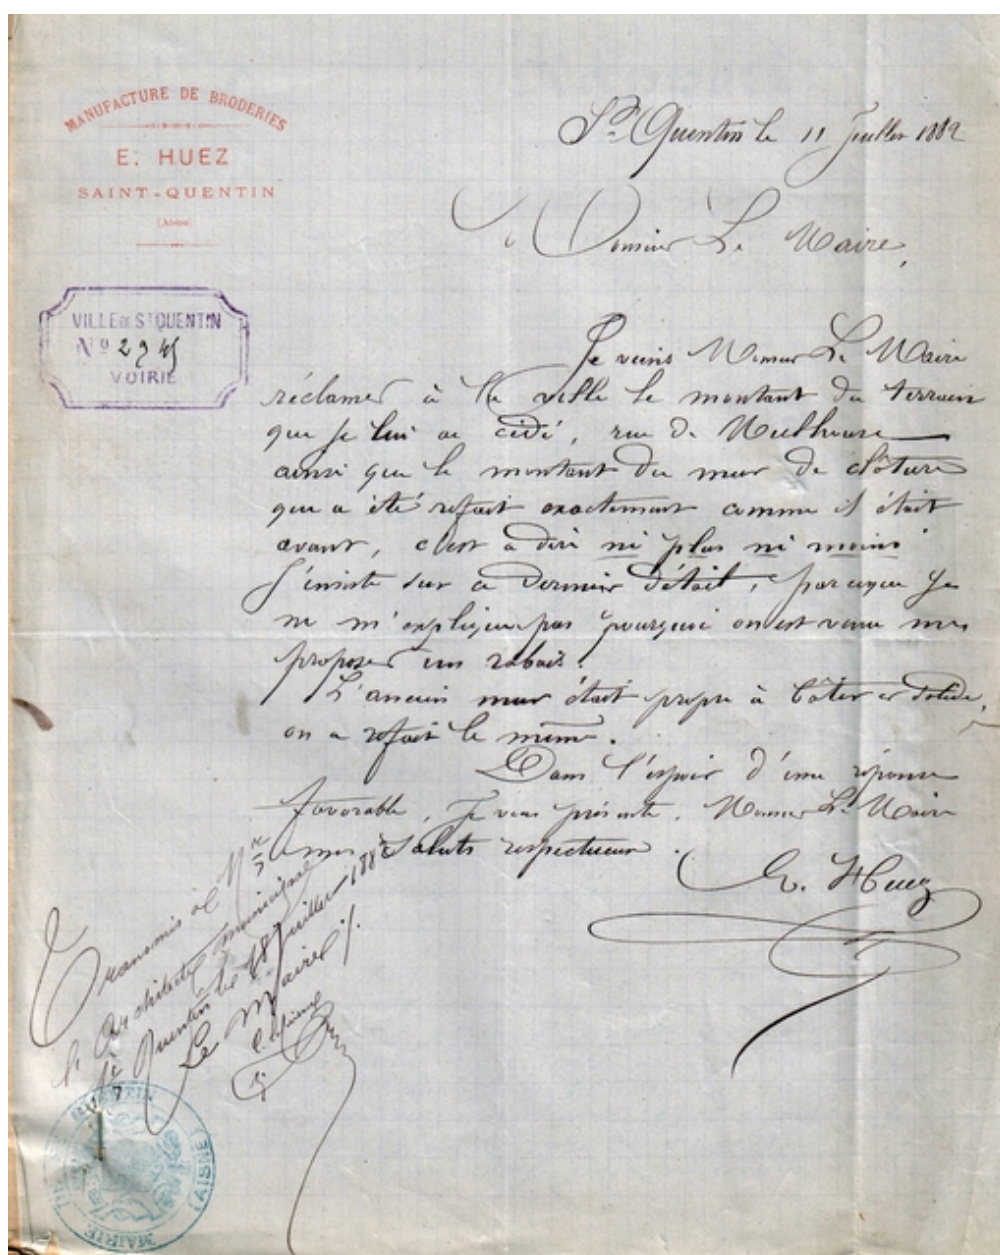 MANUFACTURE DE BRODERIES
E. HUEZ
SAINT-QUENTIN
(Aisne)
St Quentin le 11 Juillet 1882
Monsieur Le Maire,
VILLE DE ST QUENTIN
No 2945
VOIRIE
Je viens Monsieur Le Maire
réclamer à la ville le montant du terrain
que je lui ai cédé, rue de Mulhouse
ainsi que le montant du mur de clôture
qui a été refait exactement comme il était
avant, c'est à dire ni plus ni moins
J'insiste sur ce dernier détail, parceque je
ne m'explique pas pourquoi on est venu me
proposer un rabais.
L'ancien mur était propre à bâtir et solide,
on a refait le même.
Dans l'espoir d'une réponse
favorable, Je vous présente, Monsieur Le Maire
mes Saluts respectueux.
E. Huez
Transmis à Mr
l'Architecte municipal
St Quentin le 18 Juillet 1882
Le Maire
MAIRIE
QUENTIN
(AISNE)